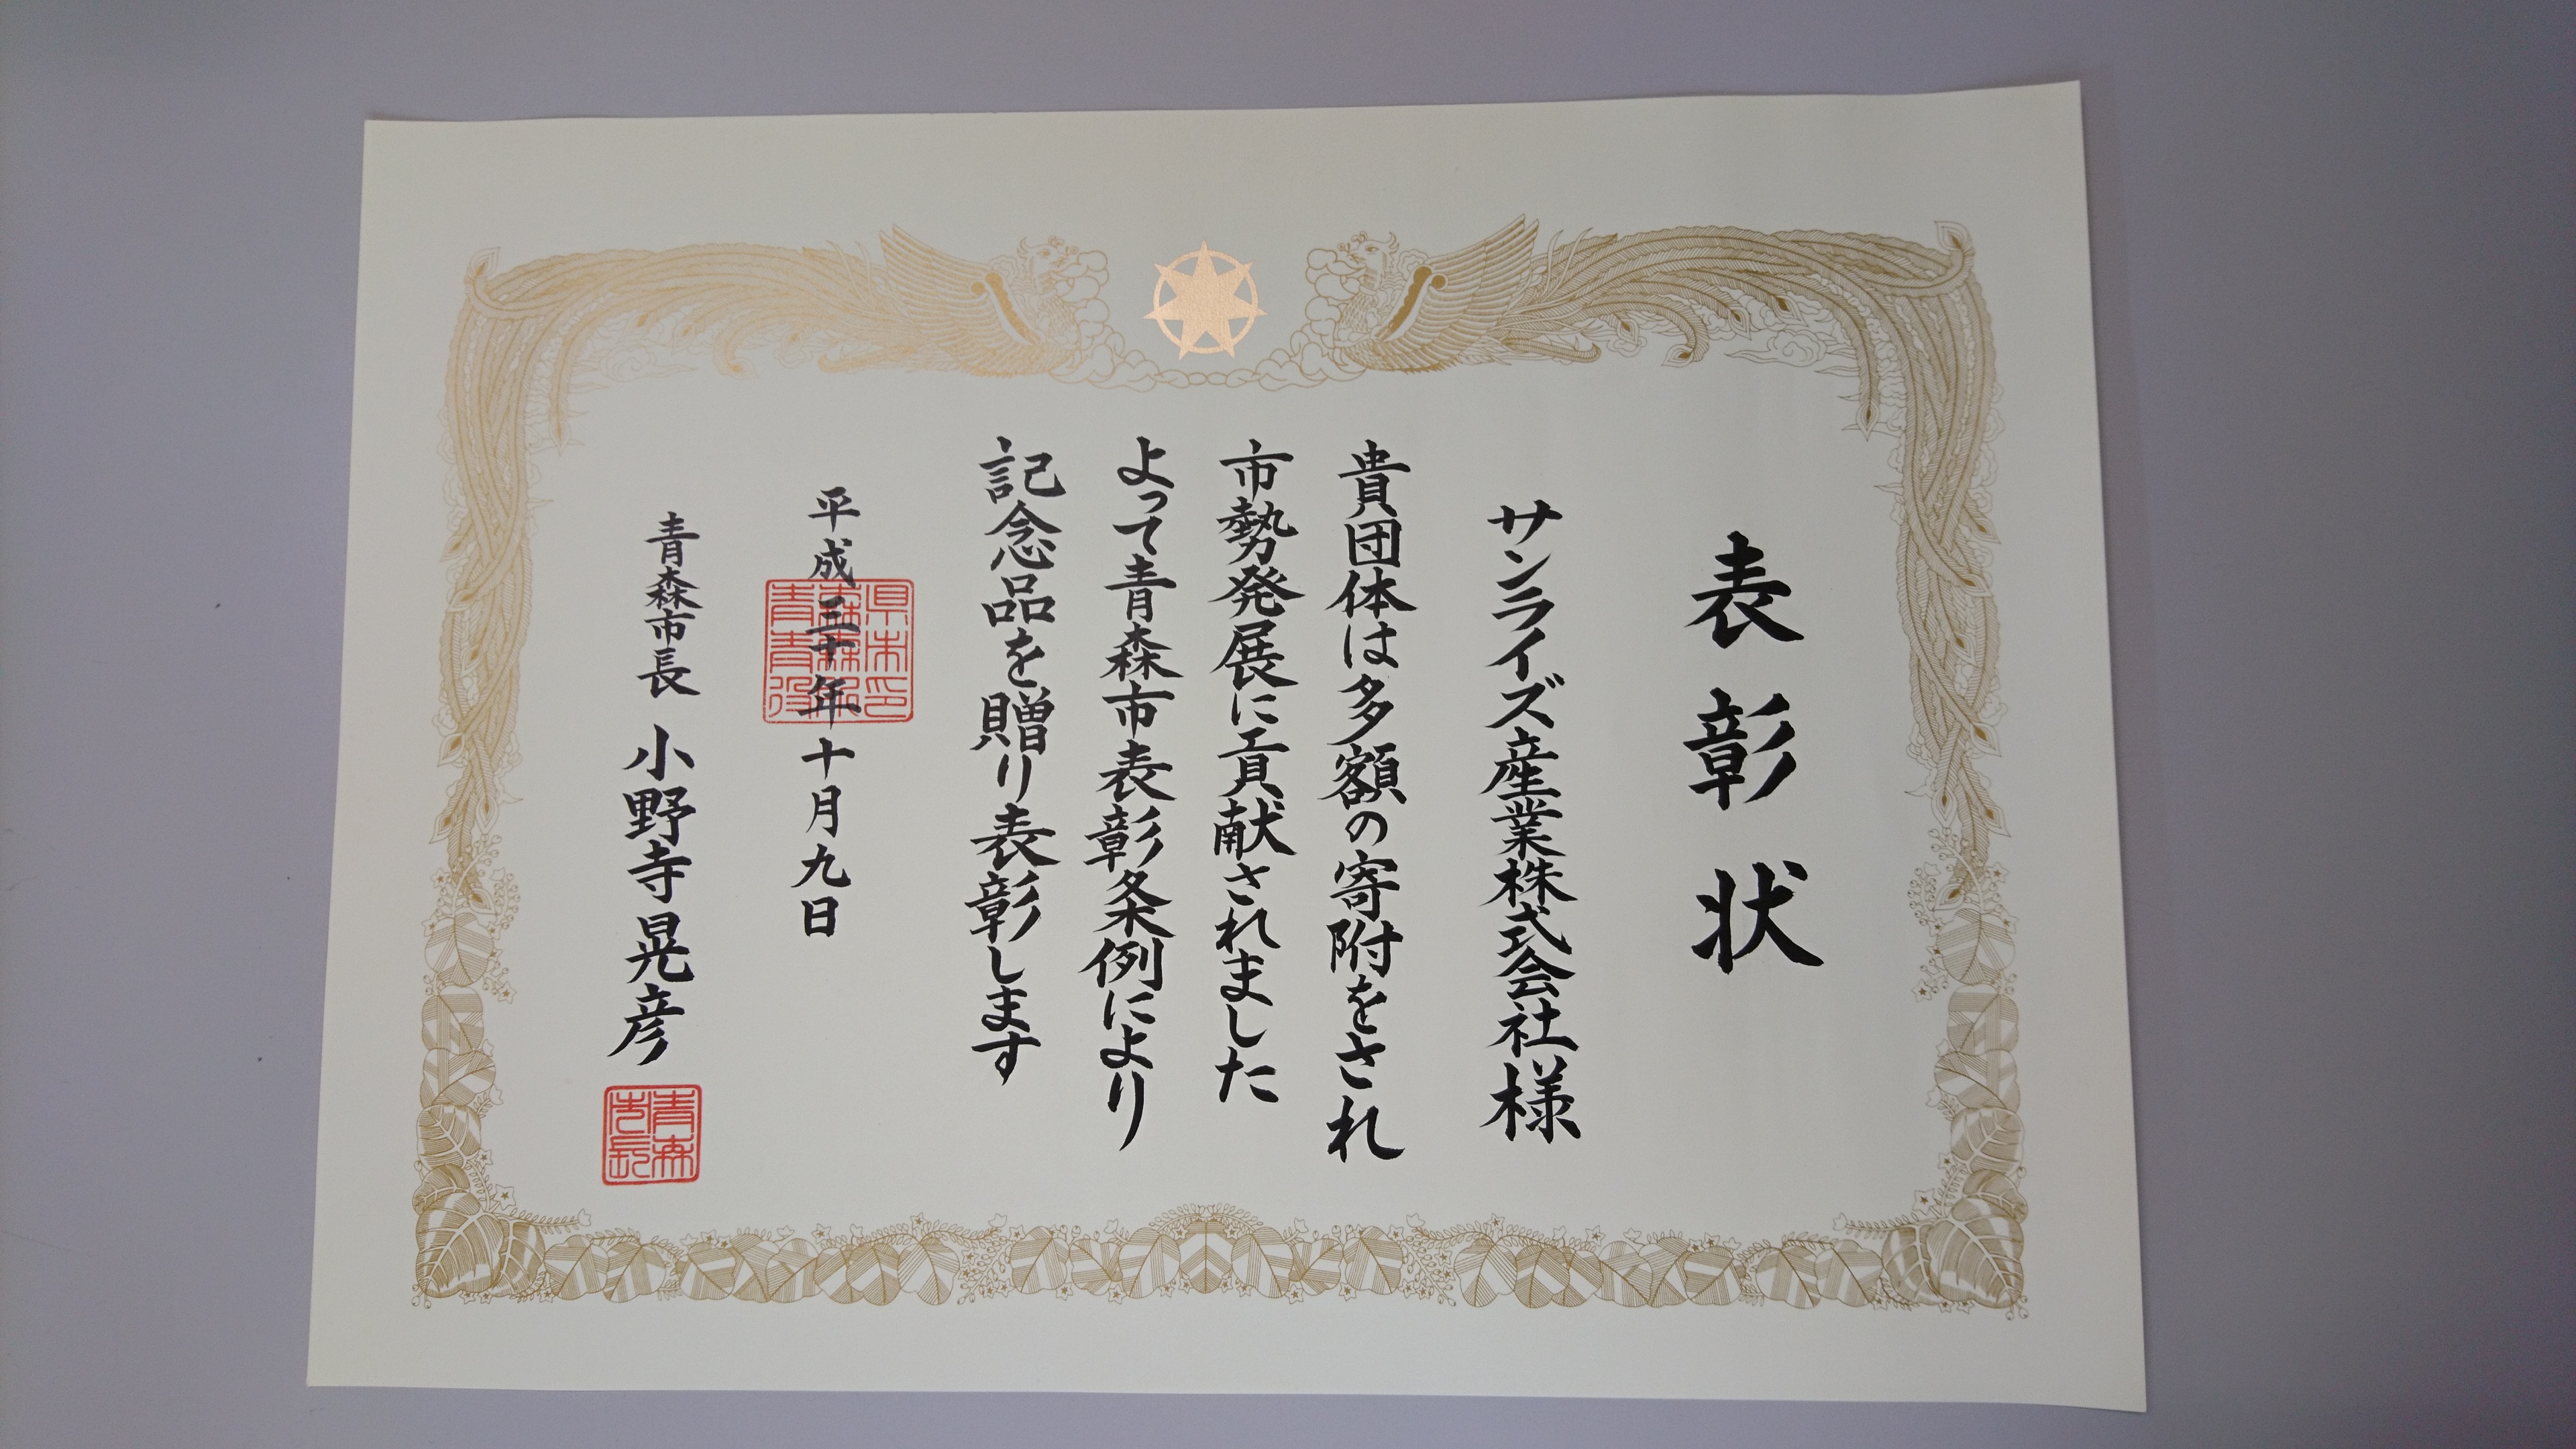 表彰状
サンライズ産業株式会社様
貴団体は多額の寄附をされ
市勢発展に貢献されました
よって青森市表彰条例により
記念品を贈り表彰します
平成三十年十月九日
青森市長 小野寺晃彦
青森
市長